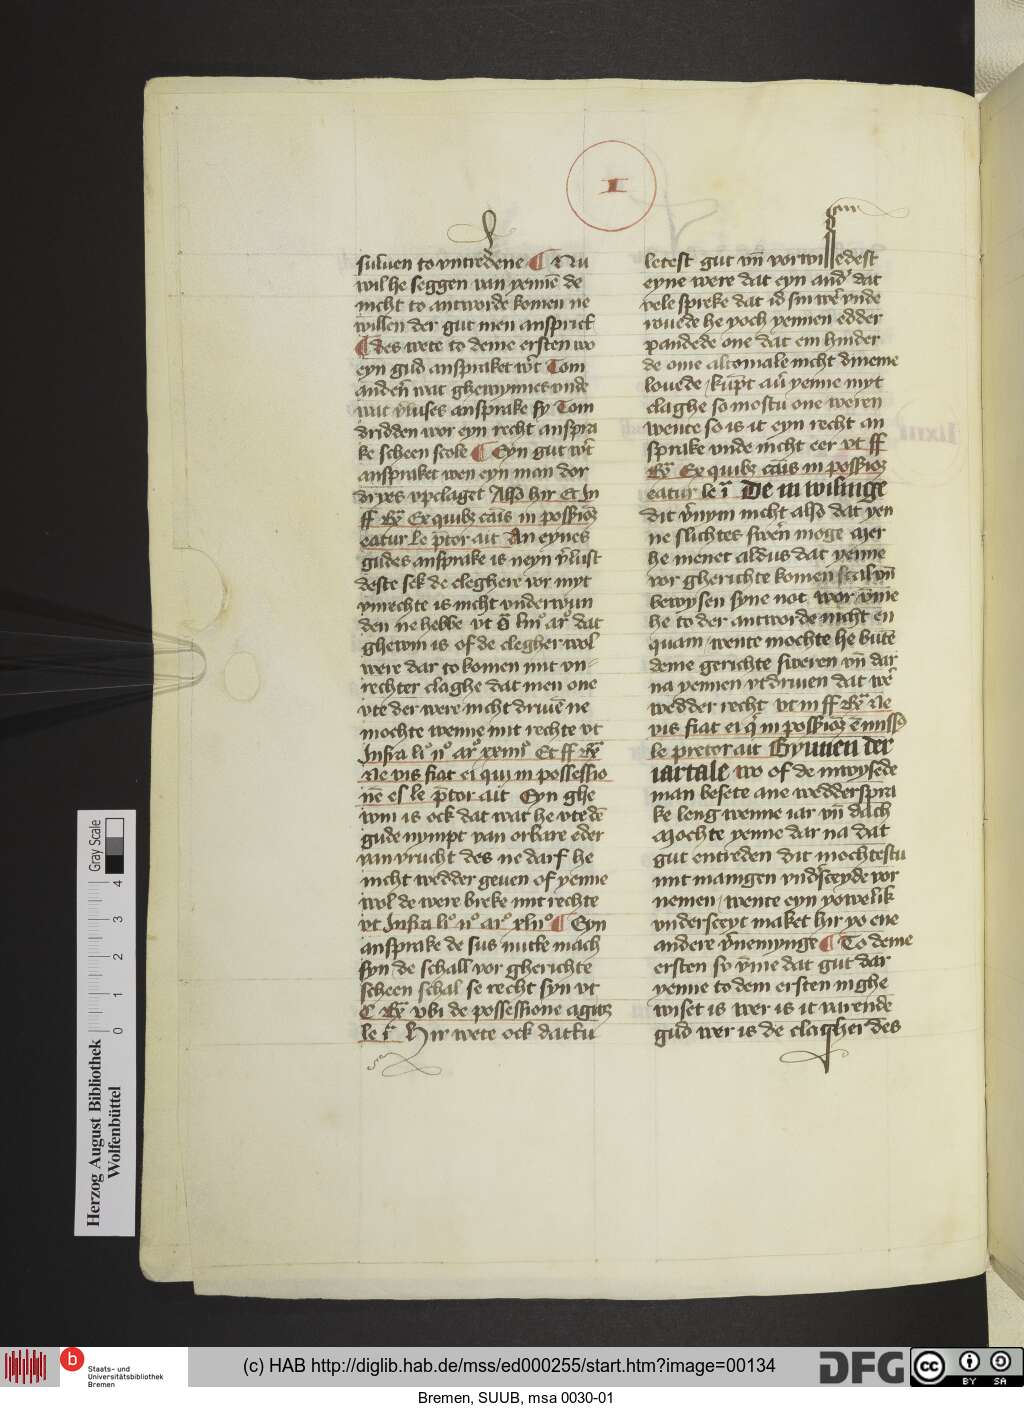 I
suluen to vntredene ¶ Nu
wil he seggen van yennē de
nicht to antworde komen ne
willen der gut men anspricket
¶ des wete to deme ersten wo
eyn gud anspraket wt̄ Tom
andern̄ wat ghewynnes vnde
wat v̄luses ansprake sy Tom
dridden wor eyn recht anspra
ke scheen scole ¶ Eyn gut wt̄
anspraket wen eyn man dor
dryes vpclaget Also hir Et In
ff Rꝫ Ex quibꝫ cāis in possessioꝫ
eatur le p̄tor ait An eynes
gudes ansprake is neyn v̄lust
deste sek de cleghere vor myt
vnrechte is nicht vnderwun
den ne hebbe vt
ghewin is of de clegher wol
were dar to komen mit vn
rechter claghe dat men one
vte der were nicht driuē ne
mochte wenne mit rechte vt
Infra li° ii° ar° xxiiii° Et ff Rꝫ
Ne vis fiat ei qui in possessio
nē es le p̄tor ait Eyn ghe
wni is ock dat wat he vtedē
gude nympt van orbare eder
van vrucht des ne darf he
nicht wedder geuen of yenne
wol de were breke mit rechte
vt Infra li° ii° ar° xlii° ¶ Eyn
ansprake de sus nutke mach
syn de schall vor gherichte
scheen schal se recht syn vt
C Rꝫ vbi de possessione agitꝫ
le i Hir wete ock dattu
letest gut vn̄ vorwissedest
eyne were dat eyn and' dat
vele spreke dat id sin wē vnde
vouede he yoch yennen edder
pandede one dat em hinder
de ome altomale nicht dineme
louede kūpt au̅ yenne myt
claghe so mostu one weren
wente so is it eyn recht an
sprake vnde nicht eer vt ff
Rꝫ Ex quibꝫ cāis in possessioꝫ
eatur le i De in wisinge
dit v̄nym nicht also dat yen
ne slichtes swern̄ moge Mer
he menet aldus dat yenne
vor gherichte komen scal vn̄
bewysen syne not wor v̄me
he to der antworde nicht en
quam wente mochte he butē
deme gerichte sweren vn̄ dar
na yennen vtdriuen dat wē
wedder recht vt in ff Rꝫ Ne
vis fiat ei q̄ in possessioꝫ ē missꝫ
le pretor ait Bynnen der
iartale wo of de inwysede
man besete ane weddersspra
ke leng wenne iar vn̄ dach
Mochte yenne dar na dat
gut entreden dit mochtestu
mit manigen vnd'sceyde vor
nemen wente eyn yowelik
vndersceyt maket hir yo ene
andere v̄nemynge ¶ To deme
ersten sy v̄me dat gut dar
yenne to dem ersten in ghe
wiset is wer is it varende
gud wer is de clagher des
Herzog August Bibliothek
Wolfenbüttel
Gray Scale
0 1 2 3 4
b
Staats- und
Universitätsbibliothek
Bremen
(c) HAB http://diglib.hab.de/mss/ed000255/start.htm?image=00134
DFG
cc
BY SA
Bremen, SUUB, msa 0030-01